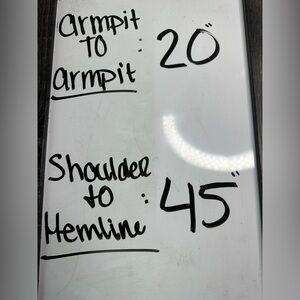 armpit
TO : 20"
armpit
Shoulder
to : 45"
Hemline